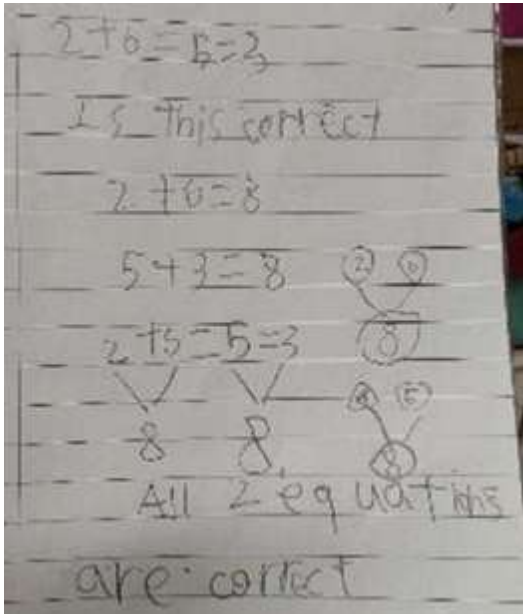 2+6=5=3
Is This correct
2+6=8
5+3=8
2 6
8
2+6=5=3
8 8
8
All 2 equations
are correct